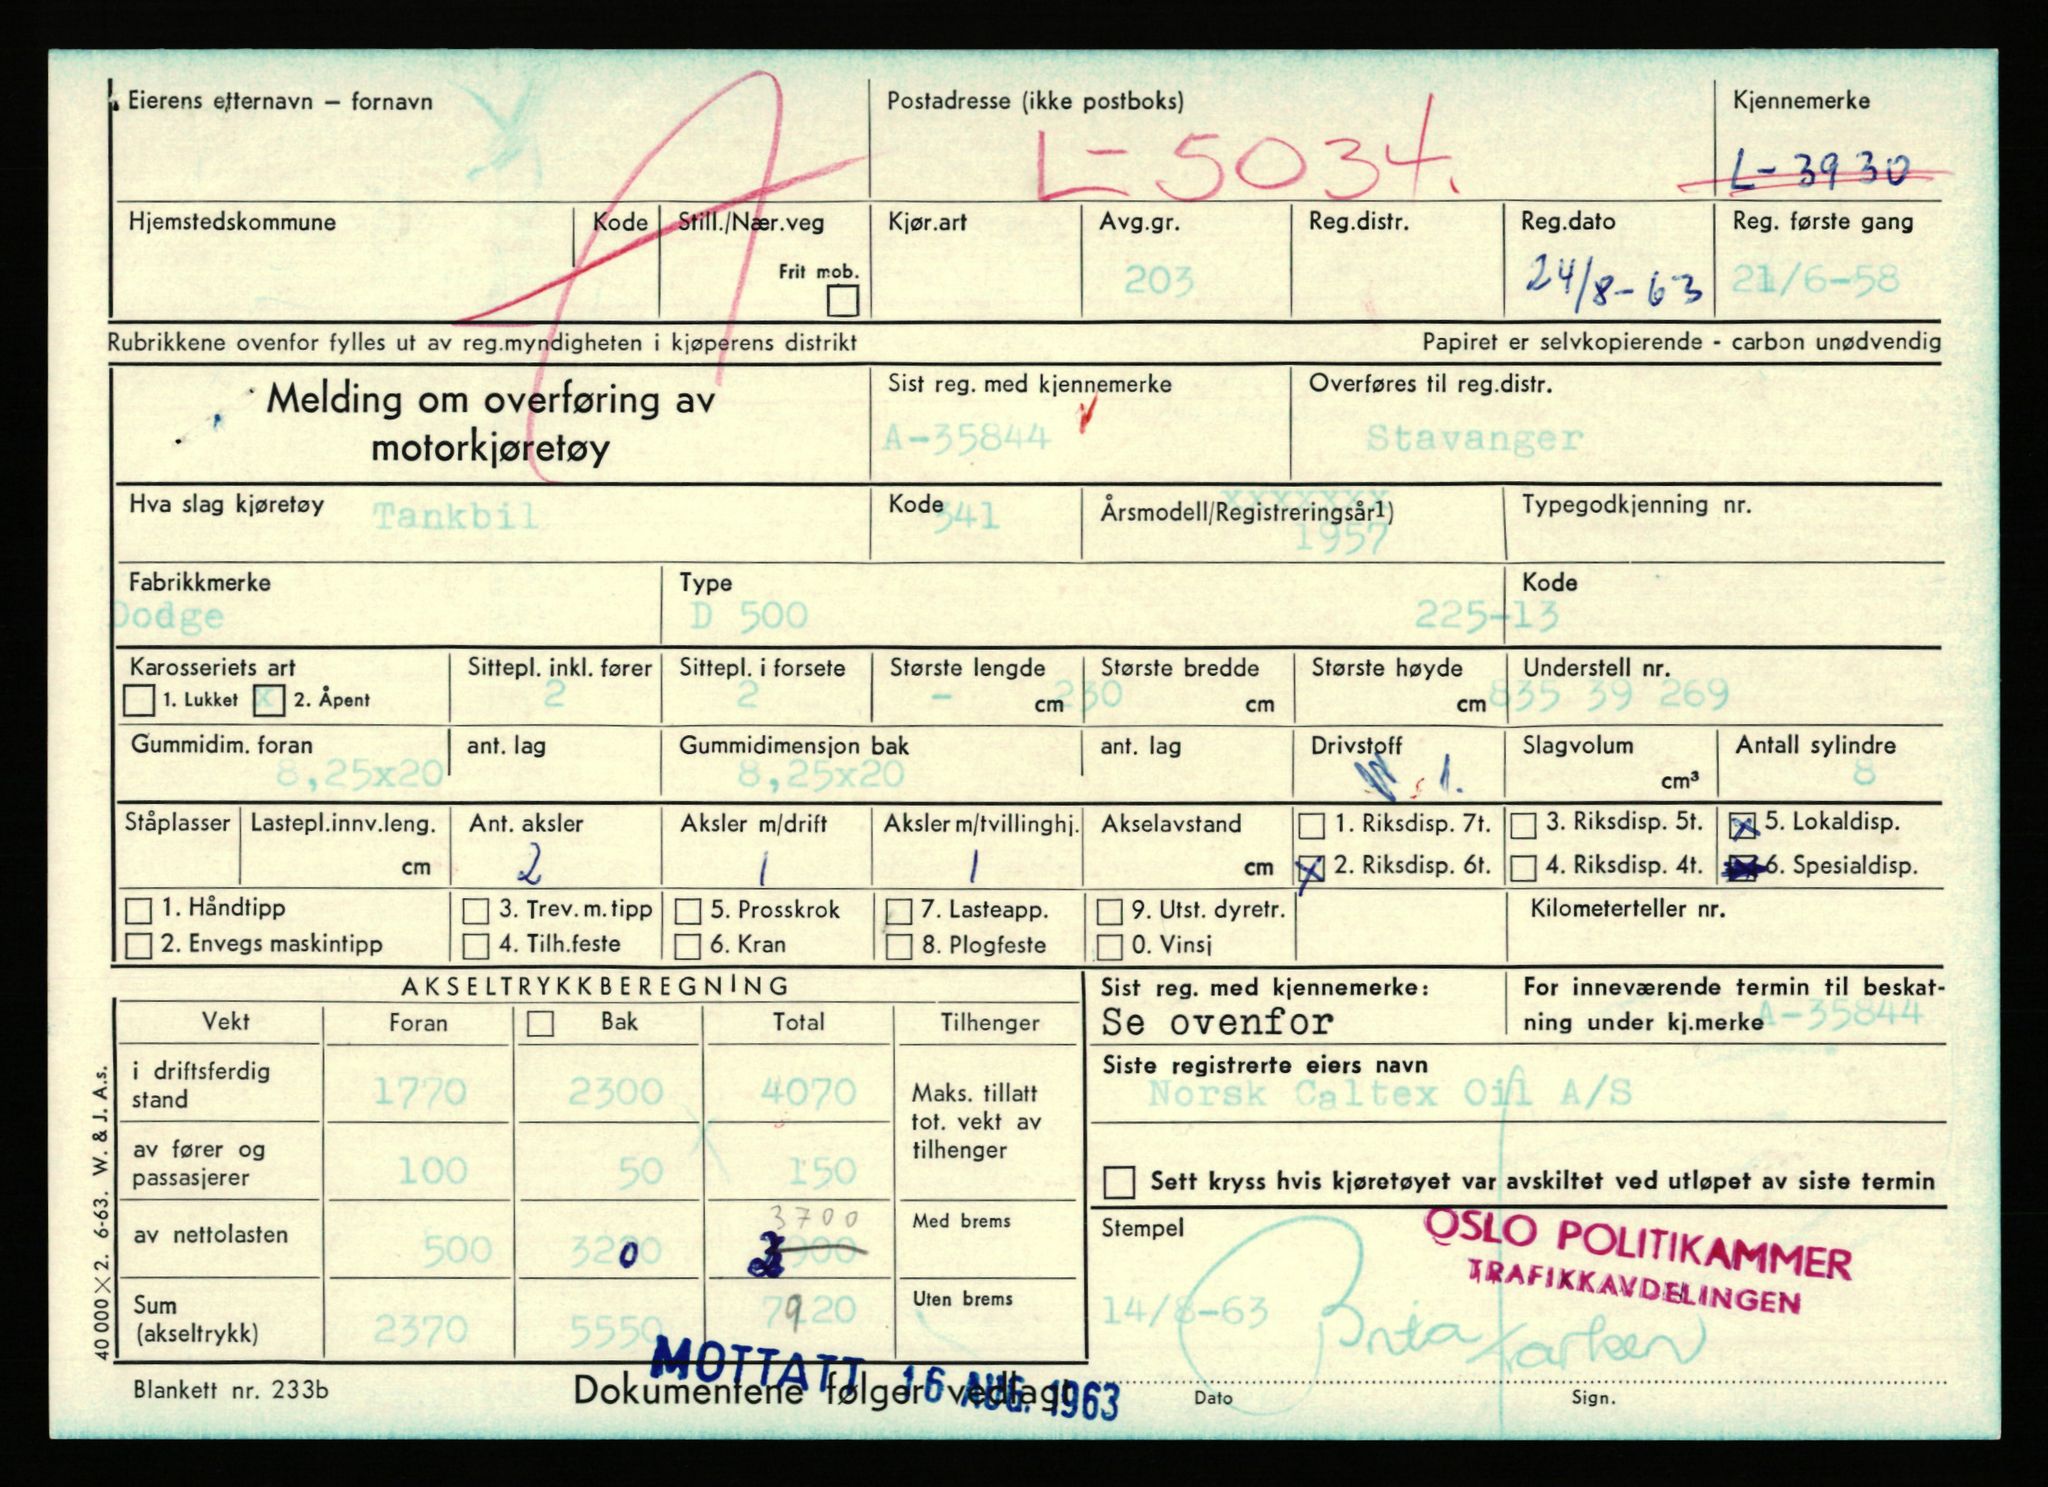 Eierens etternavn – fornavn
Postadresse (ikke postboks)
Kjennemerke
L-5034.
L-3930
Hjemstedskommune
Kode
Still./Nær.veg
Frit mob.
Kjør.art
Avg.gr.
203
Reg.distr.
Reg.dato
24/8-63
Reg. første gang
21/6-58
Rubrikkene ovenfor fylles ut av reg.myndigheten i kjøperens distrikt
Papiret er selvkopierende - carbon unødvendig
Melding om overføring av
motorkjøretøy
Sist reg. med kjennemerke
A-35844
Overføres til reg.distr.
Stavanger
Hva slag kjøretøy Tankbil
Kode 341
Årsmodell/Registreringsår1)
xxxxxxx
1957
Typegodkjenning nr.
Fabrikkmerke
Dodge
Type
D 500
225-13
Kode
Karosseriets art
1. Lukket x 2. Åpent
Sittepl. inkl. fører
2
Sittepl. i forsete
2
Største lengde
- cm
Største bredde
230 cm
Største høyde
cm
Understell nr.
835 39 269
Gummidim. foran
8,25x20
ant. lag
Gummidimensjon bak
8,25x20
ant. lag
Drivstoff
1.
Slagvolum
cm³
Antall sylindre
8
Ståplasser
Lastepl.innv.leng.
cm
Ant. aksler
2
Aksler m/drift
1
Aksler m/tvillinghj.
1
Akselavstand
cm
1. Riksdisp. 7t.
x 2. Riksdisp. 6t.
3. Riksdisp. 5t.
4. Riksdisp. 4t.
x 5. Lokaldisp.
6. Spesialdisp.
1. Håndtipp
2. Envegs maskintipp
3. Trev. m. tipp
4. Tilh.feste
5. Prosskrok
6. Kran
7. Lasteapp.
8. Plogfeste
9. Utst. dyretr.
0. Vinsj
Kilometerteller nr.
AKSELTRYKKBEREGNING
Vekt Foran Bak Total Tilhenger
i driftsferdig
stand
1770 2300 4070
Maks. tillatt
tot. vekt av
tilhenger
av fører og
passasjerer
100 50 150
3700
av nettolasten 500 3200
Med brems
Sum
(akseltrykk)
2370 5550 7920
Uten brems
Sist reg. med kjennemerke:
Se ovenfor
For inneværende termin til beskat-
ning under kj.merke A-35844
Siste registrerte eiers navn
Norsk Caltex Oil A/S
Sett kryss hvis kjøretøyet var avskiltet ved utløpet av siste termin
Stempel
OSLO POLITIKAMMER
TRAFIKKAVDELINGEN
14/8-63
Dato
Sign.
Blankett nr. 233b
Dokumentene følger vedlagt
MOTTATT 16 AUG. 1963
40 000 × 2. 6-63. W. & J. A.s.